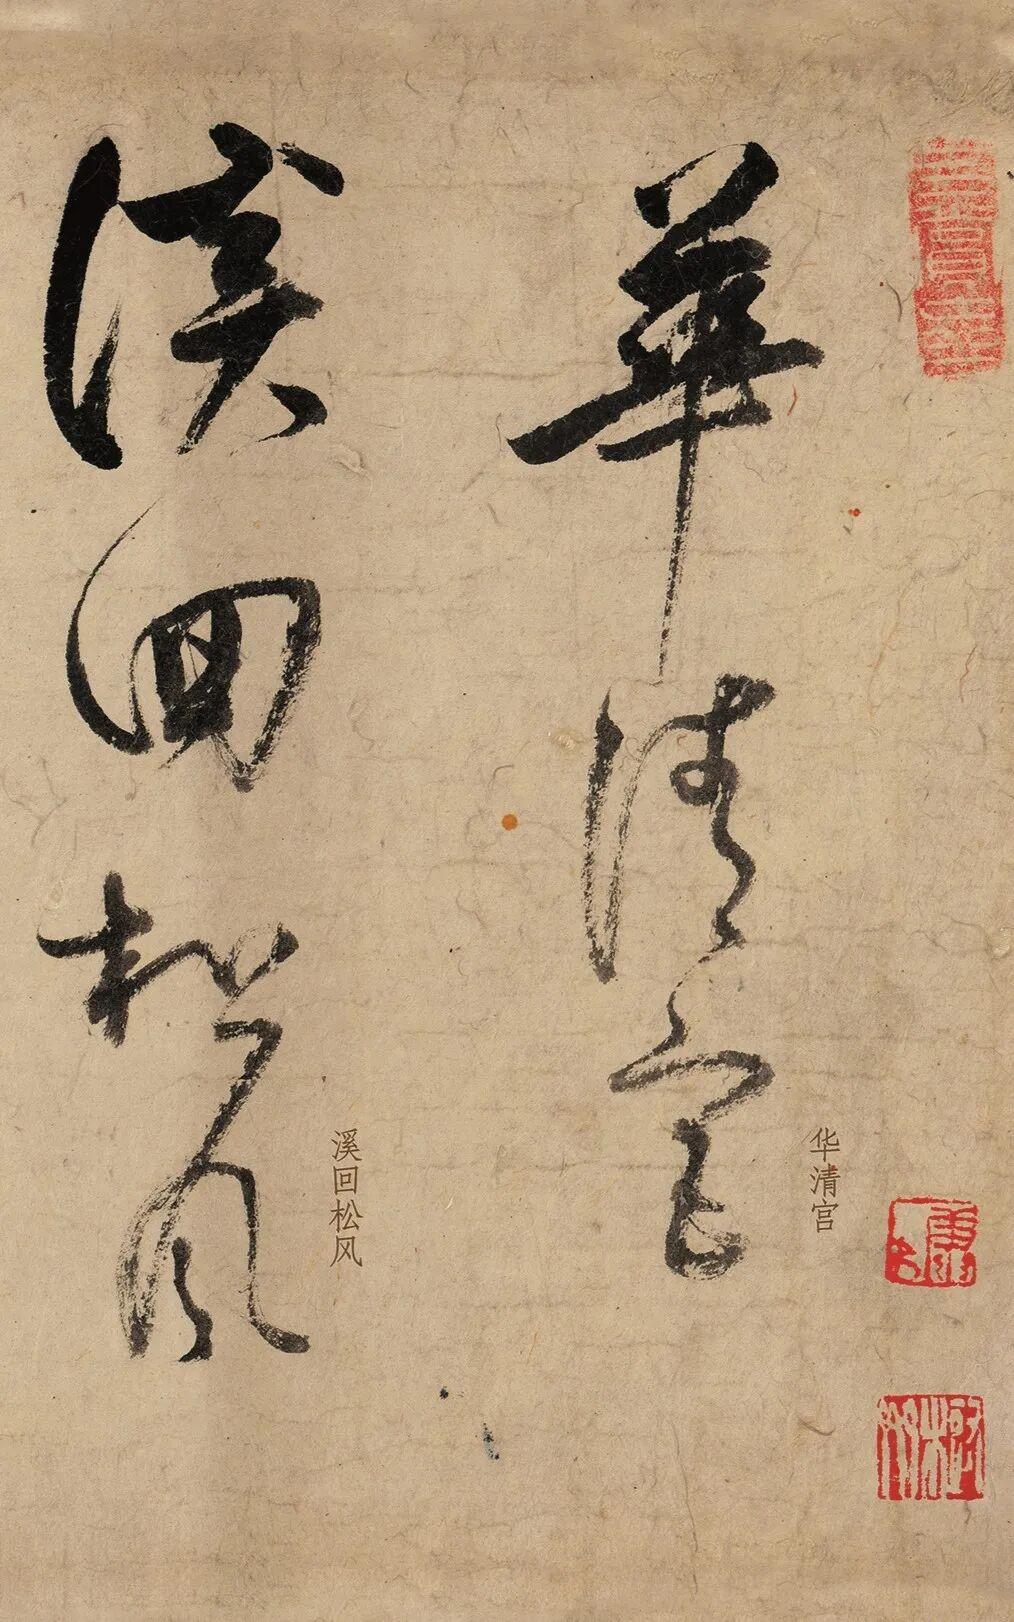 華清宫
华清宫
溪回松風
溪回松风